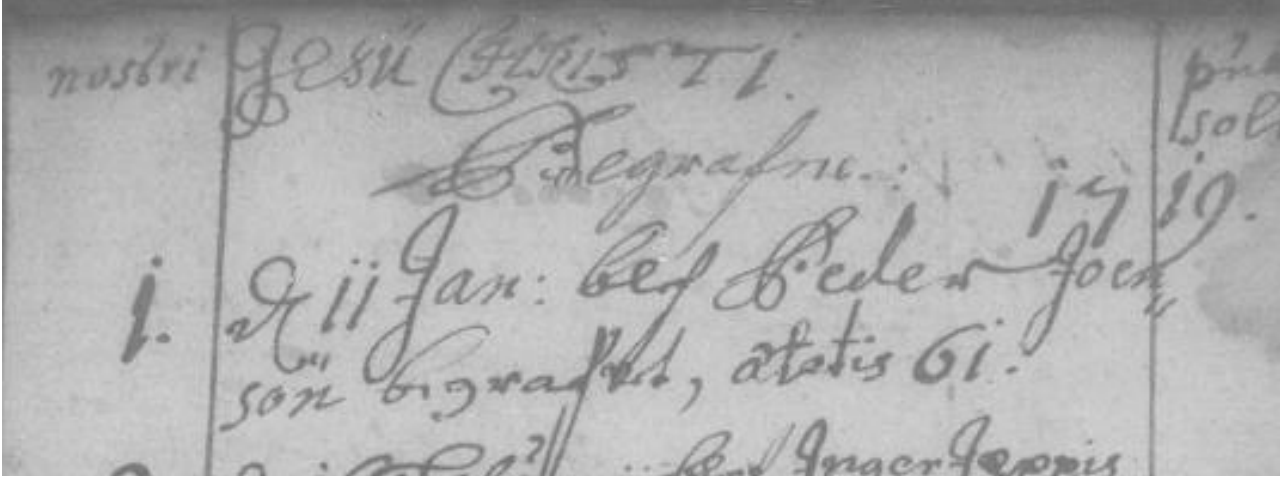 nostri Jesu Christi.
Begrafne:
1719.
1. D 11 Jan: blef Peder Joen„
sön begrafvet, ætatis 61.
Inger Jeppis